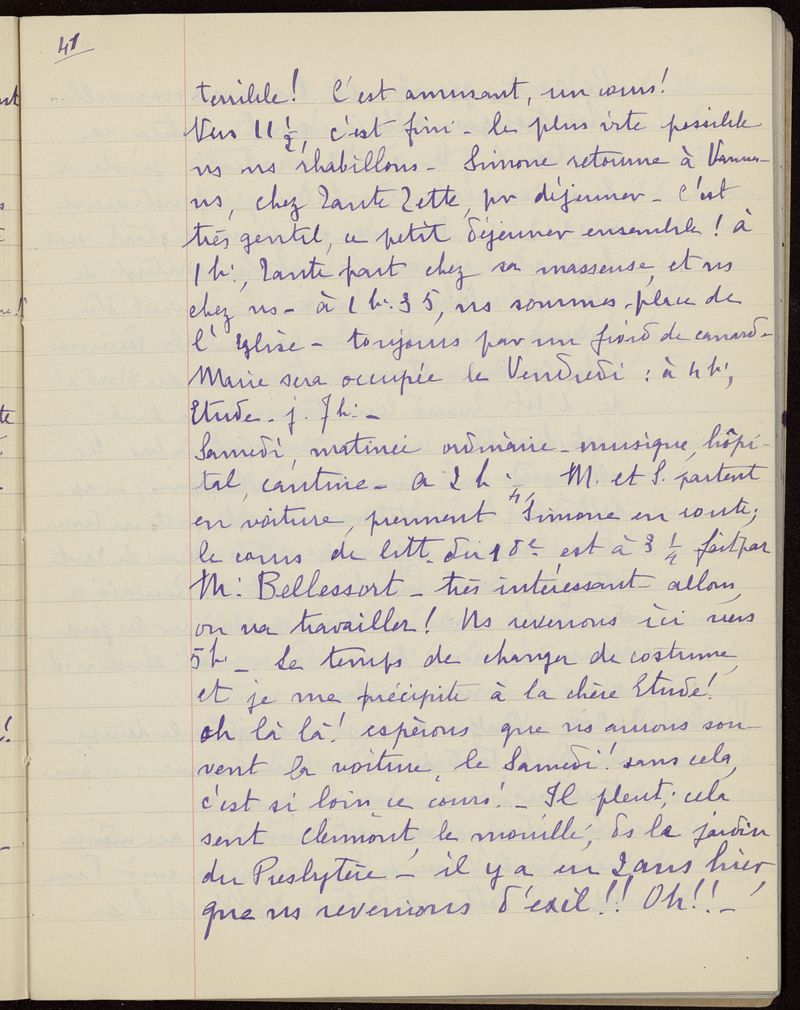 41
terrible! C'est amusant, un cours!
Vers 11 1/2, c'est fini - le plus vite possible
ns ns rhabillons - Simone retourne à
ns, chez Tante Zette, pr déjeuner - C'est
très gentil, ce petit déjeuner ensemble! à
1h., Tante part chez sa masseuse, et ns
chez ns - à 1h.35, ns sommes place de
l'Eglise - toujours par un froid de canard -
Marie sera occupée le Vendredi : à 4h,
Etude - j. 7h. -
Samedi, matinée ordinaire - musique, hôpi-
tal, cantine - a 2h 1/4, M. et S. partent
en voiture, prennent Simone en route;
le cours de litt. du 18e est à 3 1/2 fait par
M. Bellessort - très intéressant - allons,
on va travailler! Ns revenons ici vers
5h - Le temps de changer de costume,
et je me précipite à la chère Etude!
oh là là! espérons que ns aurons sou-
vent la voiture, le Samedi! sans cela,
c'est si loin ce cours! - Il pleut; cela
sent Clermont, le mouillé, ds le jardin
du Presbytère - il y a eu 2 ans hier
que ns revenions d'exil!! Oh!! -